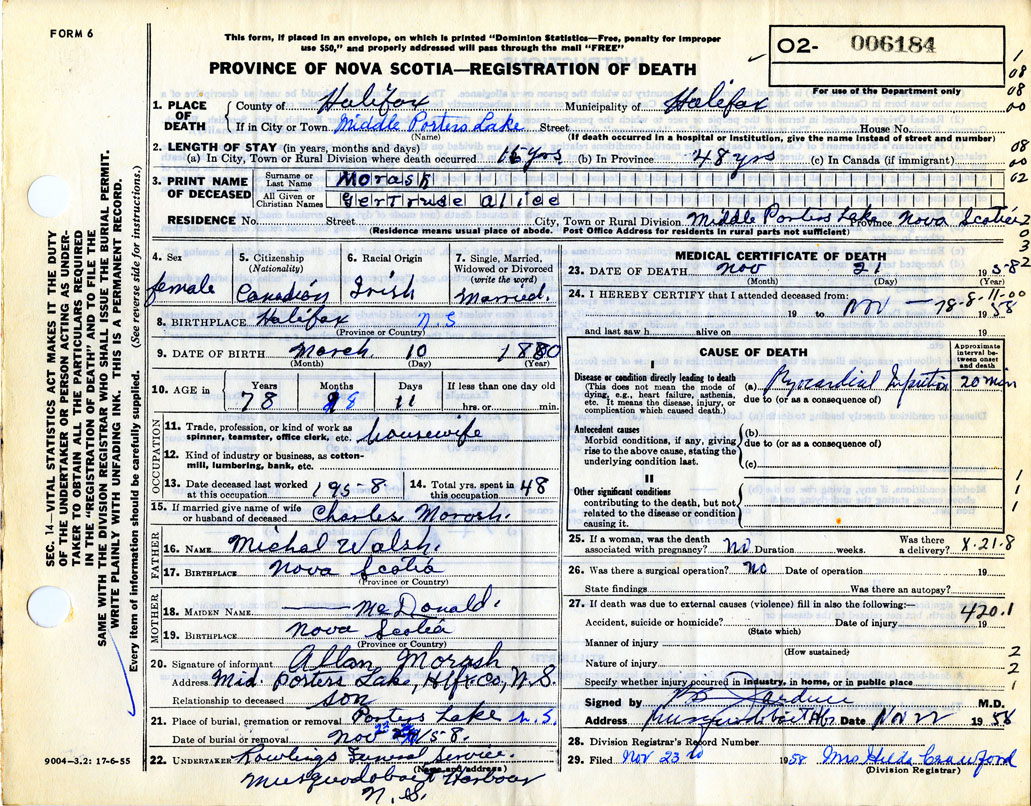 FORM 6
This form, if placed in an envelope, on which is printed "Dominion Statistics—Free, penalty for improper
use $50," and properly addressed will pass through the mail "FREE"
PROVINCE OF NOVA SCOTIA—REGISTRATION OF DEATH
O2- 006184
For use of the Department only
1. PLACE OF DEATH { County of Halifax Municipality of Halifax
If in City or Town Middle Porters Lake Street House No.
(Name) (If death occurred in a hospital or institution, give the name instead of street and number)
2. LENGTH OF STAY (in years, months and days)
(a) In City, Town or Rural Division where death occurred yrs (b) In Province 48 yrs (c) In Canada (if immigrant)
3. PRINT NAME OF DECEASED { Surname or Last Name Morash
All Given or Christian Names Gertrude Alice
RESIDENCE No. Street City, Town or Rural Division Middle Porters Lake Province Nova Scotia
(Residence means usual place of abode. Post Office Address for residents in rural parts not sufficient)
4. Sex female
5. Citizenship (Nationality) Canadian
6. Racial Origin Irish
7. Single, Married, Widowed or Divorced (write the word) Married.
8. BIRTHPLACE Halifax N.S
(Province or Country)
9. DATE OF BIRTH March 10 1880
(Month) (Day) (Year)
10. AGE in { Years Months Days If less than one day old
78 8 11 hrs. or min.
OCCUPATION
11. Trade, profession, or kind of work as spinner, teamster, office clerk, etc. housewife
12. Kind of industry or business, as cotton-mill, lumbering, bank, etc.
13. Date deceased last worked at this occupation 195-8 14. Total yrs. spent in this occupation 48
15. If married give name of wife or husband of deceased Charles Morash.
FATHER
16. NAME Michal Walsh.
17. BIRTHPLACE Nova Scotia
(Province or Country)
MOTHER
18. MAIDEN NAME McDonald.
19. BIRTHPLACE Nova Scotia
(Province or Country)
20. Signature of informant Allan Morash
Address Mid. Porters Lake, Hfx Co, N.S.
Relationship to deceased son
21. Place of burial, cremation or removal Porters Lake N.S.
Date of burial or removal Nov 195-8.
22. UNDERTAKER Rowlings Funeral Service.
(Name and address)
Musquodoboit Harbour
N.S.
9004—3.2: 17-6-55
SEC. 14—VITAL STATISTICS ACT MAKES IT THE DUTY
OF THE UNDERTAKER OR PERSON ACTING AS UNDER-
TAKER TO OBTAIN ALL THE PARTICULARS REQUIRED
IN THE "REGISTRATION OF DEATH" AND TO FILE THE
SAME WITH THE DIVISION REGISTRAR WHO SHALL ISSUE THE BURIAL PERMIT.
WRITE PLAINLY WITH UNFADING INK. THIS IS A PERMANENT RECORD.
Every item of information should be carefully supplied. (See reverse side for instructions.)
MEDICAL CERTIFICATE OF DEATH
23. DATE OF DEATH Nov 21 195-8
(Month) (Day) (Year)
24. I HEREBY CERTIFY that I attended deceased from:
19 to Nov 1958
78-8-11-00
and last saw h alive on 19
CAUSE OF DEATH
Approximate interval between onset and death
I
Disease or condition directly leading to death
(This does not mean the mode of dying, e.g., heart failure, asthenia, etc. It means the disease, injury, or complication which caused death.)
(a) Myocardial Infarction 20 min
due to (or as a consequence of)
Antecedent causes
Morbid conditions, if any, giving rise to the above cause, stating the underlying condition last.
(b)
due to (or as a consequence of)
(c)
II
Other significant conditions
contributing to the death, but not related to the disease or condition causing it.
25. If a woman, was the death associated with pregnancy? No Duration weeks. Was there a delivery? X-21-8
26. Was there a surgical operation? No Date of operation 19
State findings Was there an autopsy?
27. If death was due to external causes (violence) fill in also the following:—
420.1
Accident, suicide or homicide? Date of injury 19
(State which)
Manner of injury
(How sustained)
Nature of injury
Specify whether injury occurred in industry, in home, or in public place
Signed by Jardine M.D.
Address Musquodoboit Hbr Date Nov 22 1958
28. Division Registrar's Record Number
29. Filed Nov 23rd 1958 Mrs Hilda Crawford
(Division Registrar)
1
08
08
00
08
00
02
2
0
3
2
1
1
1
2
2
1